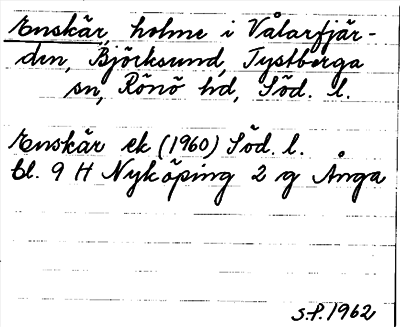 Enskär, holme i Vålarfjär-
den, Björksund, Tystberga
sn, Rönö hd, Söd. l.
Enskär ek (1960) Söd. l.
bl. 9 H Nyköping 2 g Ånga
S.P. 1962